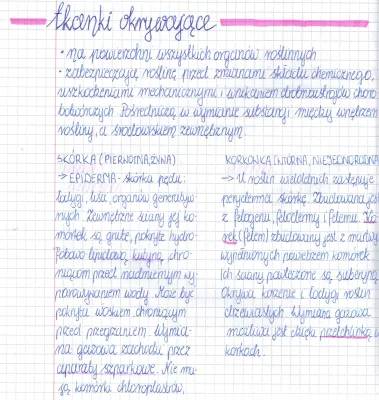 tkanki okrywające
• na powierzchni wszystkich organów roślinnych
• zabezpieczają roślinę przed zmianami składu chemicznego,
uszkodzeniami mechanicznymi i wnikaniem drobnoustrojów choro-
botwórczych. Pośredniczą w wymianie substancji między wnętrzem
rośliny, a środowiskiem zewnętrznym.
SKÓRKA (PIERWOTNA, ŻYWA)
→ EPIDERMA - skórka pędu:
łodygi, liścia, organów generatyw-
nych. Zewnętrzne ściany jej ko-
mórek są grube, pokryte hydro-
fobową lipidową kutyną, chro-
niącom przed nadmiernym wy-
parowywaniem wody. Może być
pokryta woskiem chroniącym
przed przegrzaniem. Wymia-
na gazowa zachodzi przez
aparaty szparkowe. Nie ma-
ją komórki chloroplastów,
KORKOWICA (WTÓRNA, NIEJEDNORODNA)
→ U roślin wieloletnich zastępuje
peryderma skórkę. Zbudowana jest
z felogenu, felodermy i felemu. Ko-
rek (felem) zbudowany jest z martwych
wypełnionych powietrzem komórek.
Ich ściany powleczone są suberyną.
Okrywa korzenie i łodygi roślin
drzewiastych. Wymiana gazowa
możliwa jest dzięki przetchlinką w
korkach.